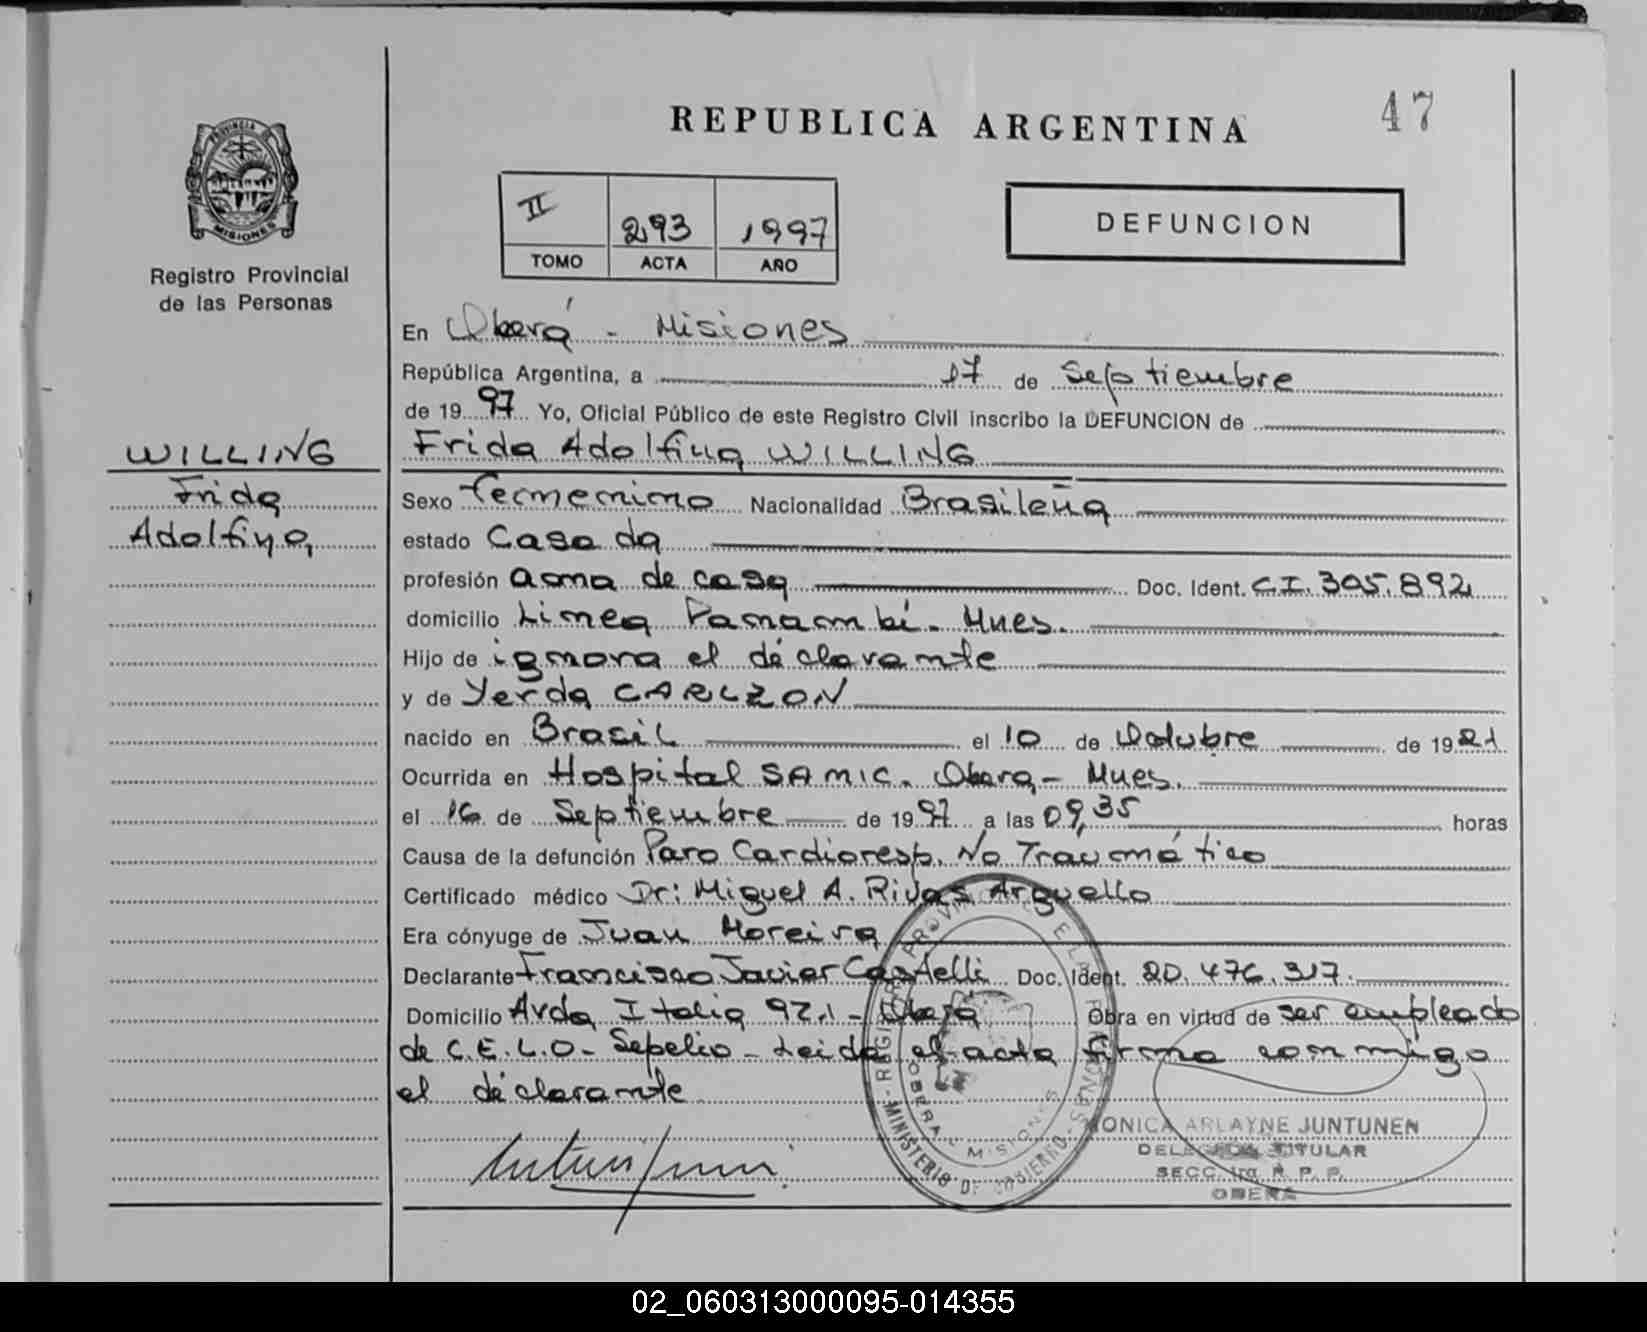 47
REPUBLICA ARGENTINA
PROVINCIA DE
MISIONES
Registro Provincial
de las Personas
II 293 1997
TOMO ACTA AÑO
DEFUNCION
En Oberá - Misiones
República Argentina, a 17 de Septiembre
de 1997 Yo, Oficial Público de este Registro Civil inscribo la DEFUNCION de
WILLING
Frida
Adolfina
Frida Adolfina WILLING
Sexo Femenino Nacionalidad Brasileña
estado Casada
profesión ama de casa Doc. Ident. C.I. 305.892
domicilio Linea Panambí. Mnes.
Hijo de ignora el déclarante
y de Yerda CARLZON
nacido en Brasil el 10 de Octubre de 1921
Ocurrida en Hospital SAMIC. Obera - Mnes.
el 16 de Septiembre de 1997 a las 09,35 horas
Causa de la defunción Paro Cardioresp. No Traumático
Certificado médico Dr: Miguel A. Rivas Arguello
Era cónyuge de Juan Moreira
Declarante Francisco Javier Castelli Doc. Ident. 20.476.317.
Domicilio Avda Italia 921 - Oberá Obra en virtud de ser empleado
de C.E.L.O - Sepelio - Leida el acta firma conmigo
el déclarante
OBERA - MISIONES
MINISTERIO DE GOBIERNO
MONICA ARLAYNE JUNTUNEN
DELEGADA TITULAR
SECC. 1ra R. P. P.
OBERA
02_060313000095-014355